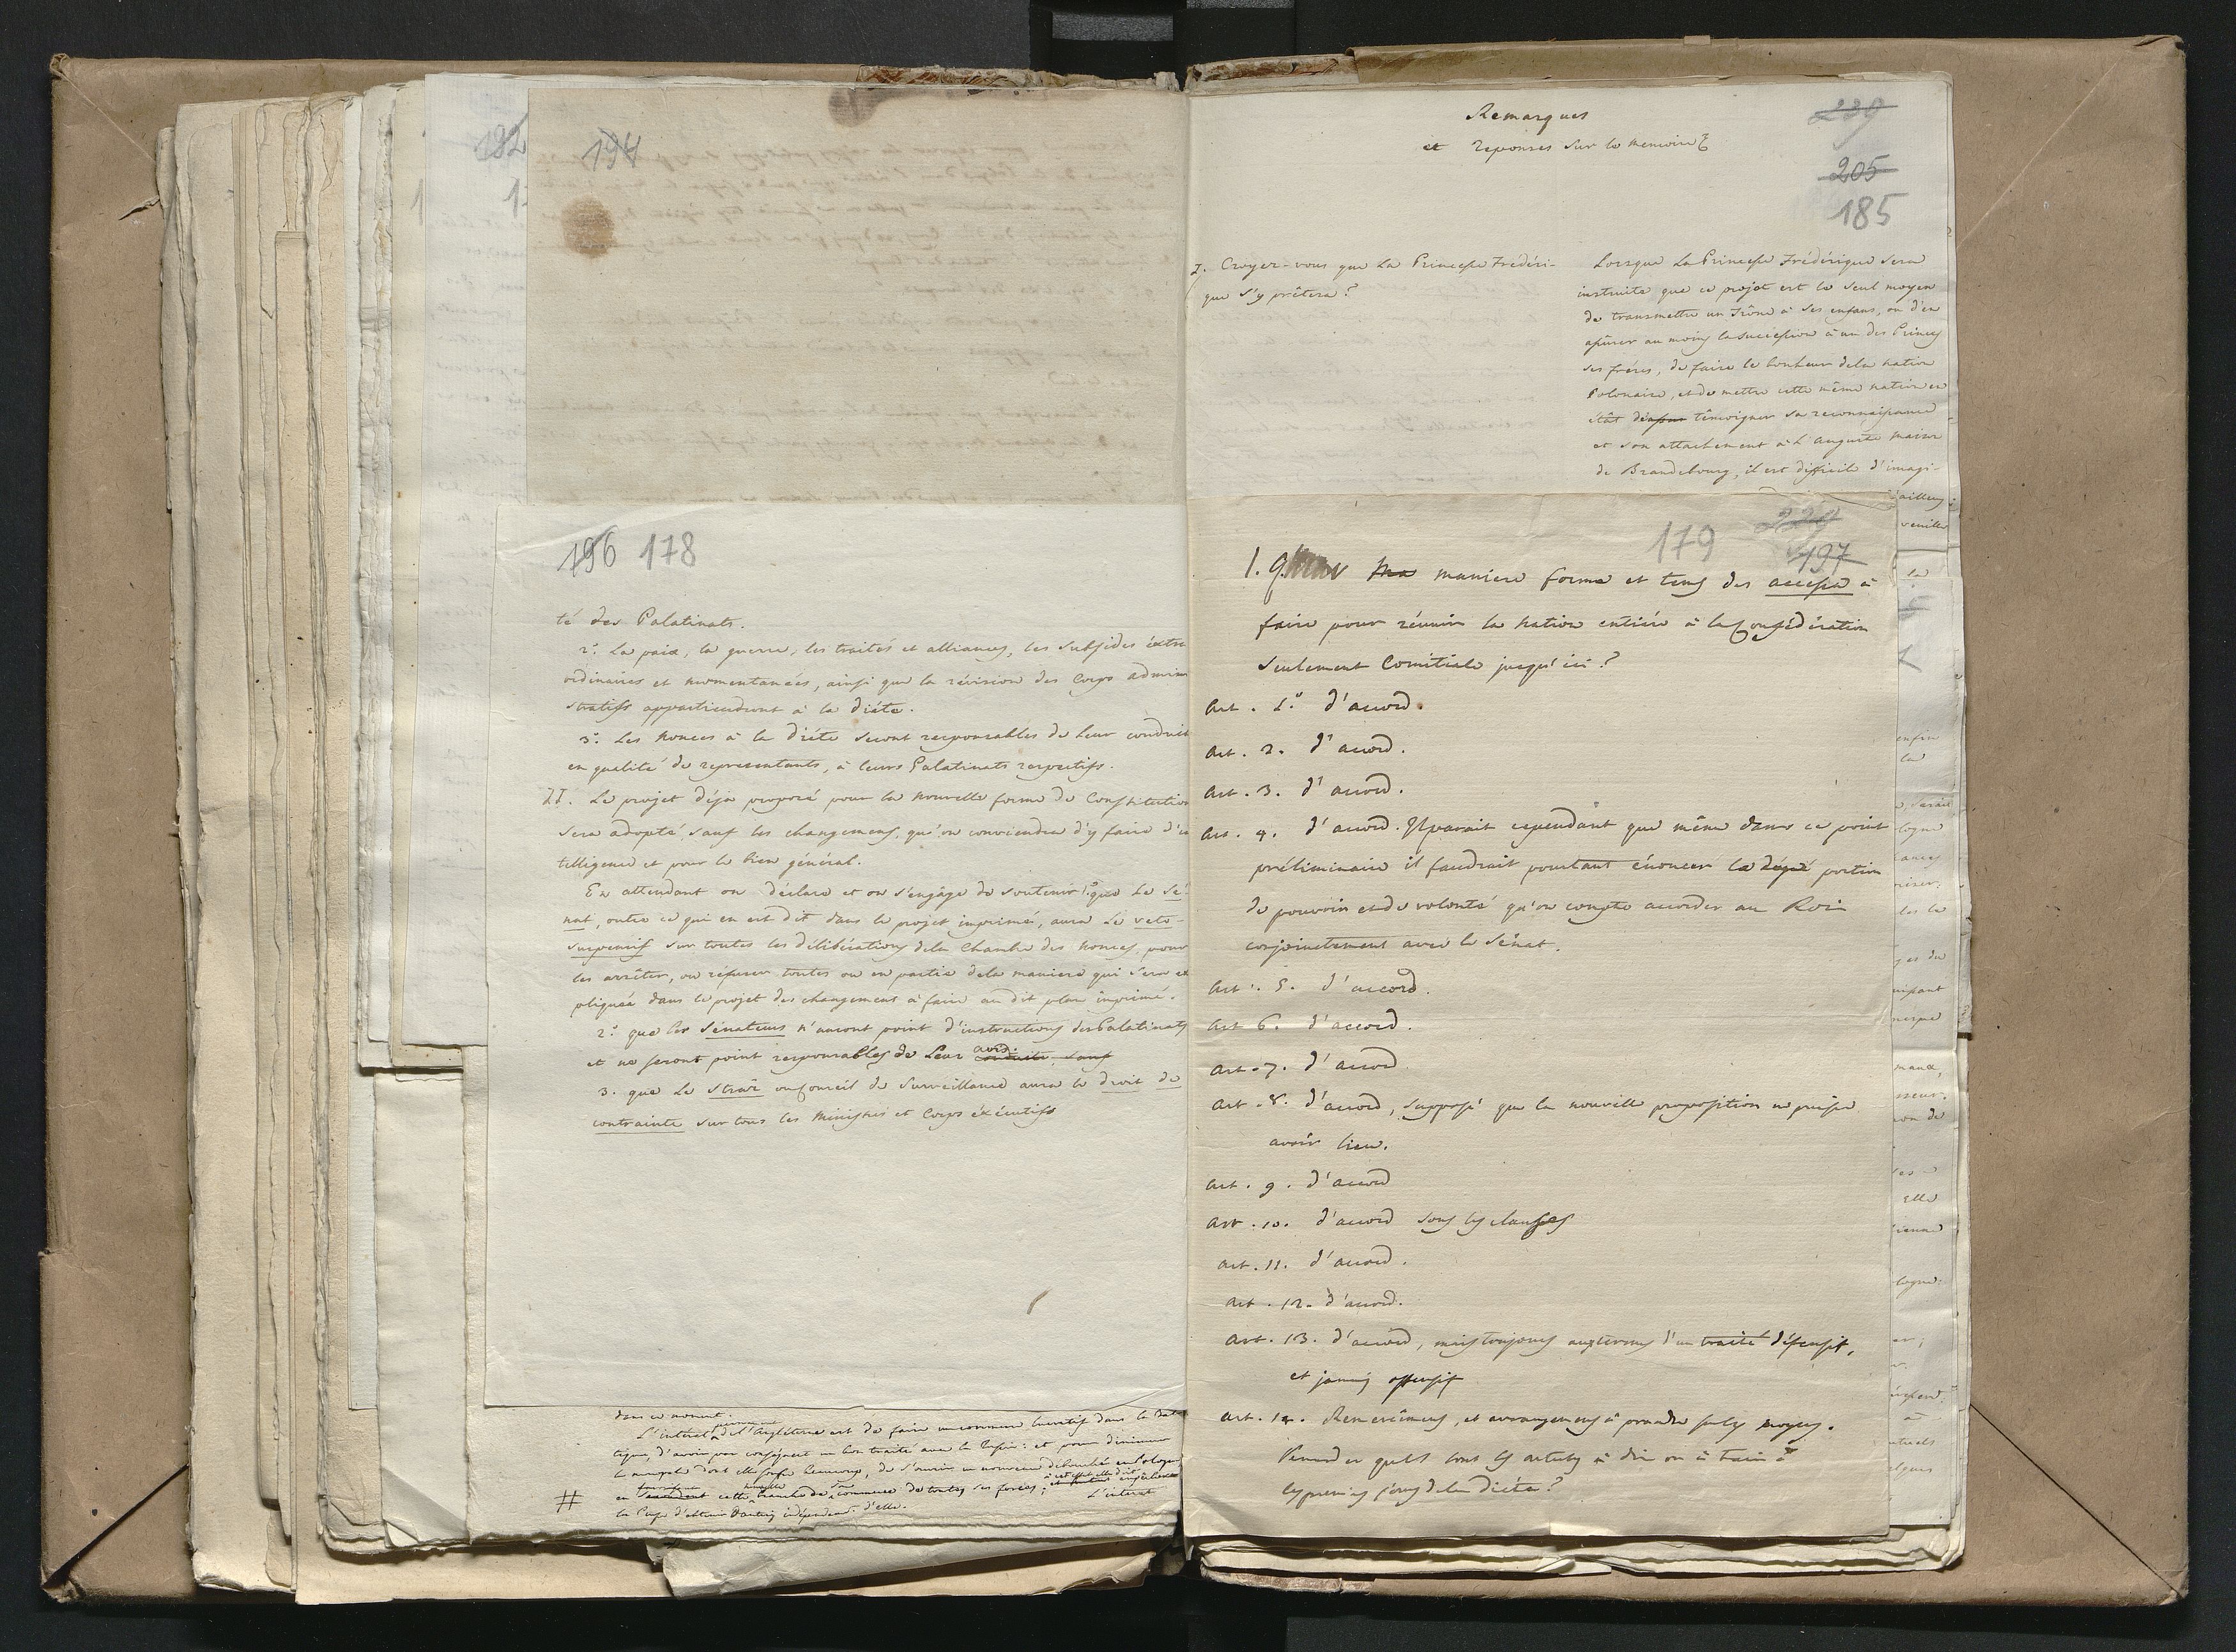 192
194
196 178
té des Palatinats.
2.° La paix, la guerre, les traités et alliances, les Subsides extra
ordinaires et momentanées, ainsi que la révision des Corps admini
stratifs appartiendront à la diéte.
3.° Les Nonces à la diéte seront responsables de leur conduit
en qualité de representants, à leurs Palatinats respectifs.
II. Le projet déja proposé pour la nouvelle forme de Constitution
sera adopté sauf les changemens, qu'on conviendra d'y faire d'in
telligence et pour le bien général.
En attendant on déclare et on s'engage de soutenir 1.° que Le Sé
nat, outre ce qui en est dit dans le projet imprimé, aura Le veto-
suspensif sur toutes les délibérations de la Chambre des Nonces, pour
les arrêter, ou réfuser toutes ou en partie de la maniere qui sera ex
pliquée dans le projet des changemens à faire au dit plan imprimé.
2.° que les Sénateurs n'auront point d'instructions des Palatinats
et ne seront point responsables de Leur avis. conduite, sauf
3. que Le Straż ou Conseil de Surveillance aura le droit de
contrainte sur tous les Ministres et Corps éxécutifs
dans ce moment
L'intérêt de l'Angleterre est de faire un commerce lucratif dans la Bal
tique, d'avoir par conséquent un bon traité avec la Russie: et pour diminuer
dont elle souffre beaucoup, de s'ouvrir un nouveau débouché en Pologne
en cette branche de commerce de toutes ses forces;
# L'interet
la Prusse d'obtenir Dantzig indépend. d'elle.
Remarques
et reponses sur le memoire
239
205
185
I. Croyez-vous que La Princesse Frédéri-
que s'y prêtera?
Lorsque La Princesse Frédérique sera
instruite que ce projet est le seul moyen
de transmettre un Trône à ses enfans, ou d'en
assurer au moins la succession à un des Princes
ses fréres, de faire le bonheur de la nation
Polonaise, et de mettre cette même nation en
état de témoigner sa reconnaissance
et son attachement à L'auguste maison
de Brandebourg, il est difficile d'imagi-
179
197
1. maniere forme et tems des accessa à
faire pour réunir la nation entiére à la Conféderation
seulement Comitiale jusqu'ici?
Art. 1.° d'accord.
Art. 2. d'accord.
Art. 3. d'accord.
Art. 4. d'accord. Il parait cependant que même dans ce point
préliminaire il faudrait pourtant énoncer la portion
de pouvoir et de volonté qu'on compte accorder au Roi
conjointement avec le Sénat.
Art. 5. d'accord.
Art 6. d'accord.
Art. 7. d'accord.
Art. 8. d'accord, supposé que la nouvelle proposition ne puisse
avoir lieu.
Art. 9. d'accord
Art. 10. d'accord sous les clauses
Art. 11. d'accord.
Art. 12. d'accord.
Art. 13. d'accord, mais toujours aux termes d'un traité défensif,
et jamais offensif
Art. 14. Remercimens, et arrangemens à prendre sur les moyens.
quels sont les articles à dire ou à taire à
les premiers jours de la diéte?